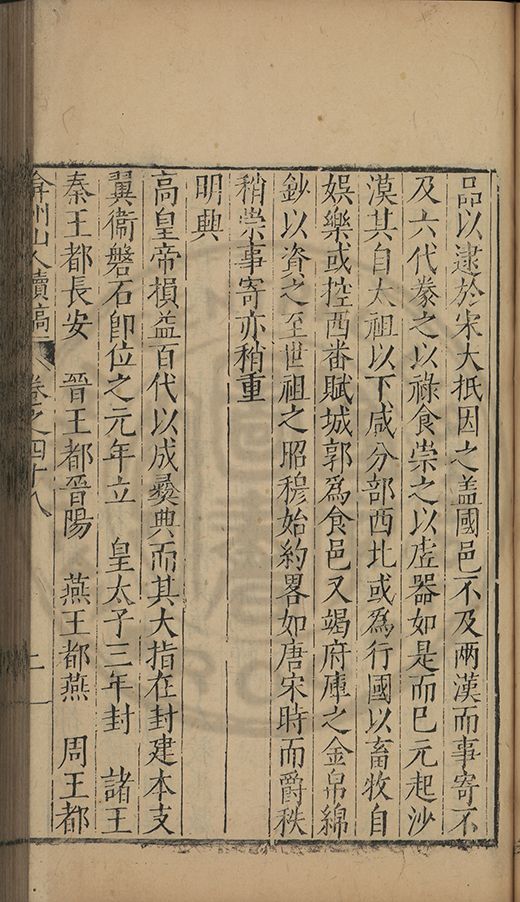 品以逮於宋大抵因之盖國邑不及兩漢而事寄不
及六代豢之以祿食崇之以虛器如是而已元起沙
漠其自太祖以下咸分部西北或爲行國以畜牧自
娛樂或控西番賦城郭爲食邑又竭府庫之金帛綿
鈔以資之至世祖之昭穆始約畧如唐宋時而爵秩
稍崇事寄亦稍重
明興
高皇帝損益百代以成彝典而其大指在封建本支
翼衞磐石卽位之元年立 皇太子三年封 諸王
秦王都長安 晉王都晉陽 燕王都燕 周王都
弇州山人續稿 卷之四十八